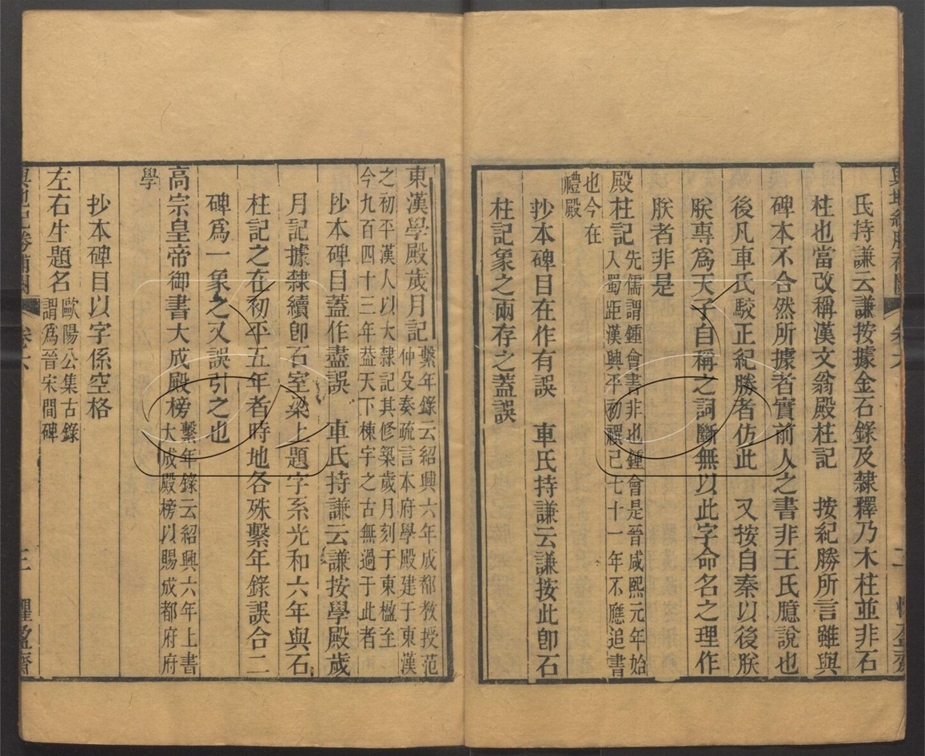 氏持謙云謙按據金石錄及隸釋乃木柱並非石
柱也當改稱漢文翁殿柱記　按紀勝所言雖與
碑本不合然所據者實前人之書非王氏臆說也
後凡車氏駮正紀勝者仿此　又按自秦以後朕
朕專爲天子自稱之詞斷無以此字命名之理作
朕者非是
殿柱記
先儒謂鍾會書非也鍾會是晉咸熙元年始
入蜀距漢興平初禩己七十一年不應追書
也今在
禮殿
抄本碑目在作有誤　車氏持謙云謙按此卽石
柱記象之兩存之蓋誤
東漢學殿歲月記
繫年錄云紹興六年成都教授范
仲殳奏疏言本府學殿建于東漢
之初平漢人以大隸記其修築歲月刻于東楹至
今九百四十三年葢天下棟宇之古無過于此者
抄本碑目蓋作盡誤　車氏持謙云謙按學殿歲
月記據隸續卽石室梁上題字系光和六年與石
柱記之在初平五年者時地各殊繫年錄誤合二
碑爲一象之又誤引之也
高宗皇帝御書大成殿榜
繫年錄云紹興六年上書
大成殿榜以賜成都府府
學
抄本碑目以字係空格
左右生題名
歐陽公集古錄
謂爲晉宋間碑
卷六
三
懼盈齋
卷六
二